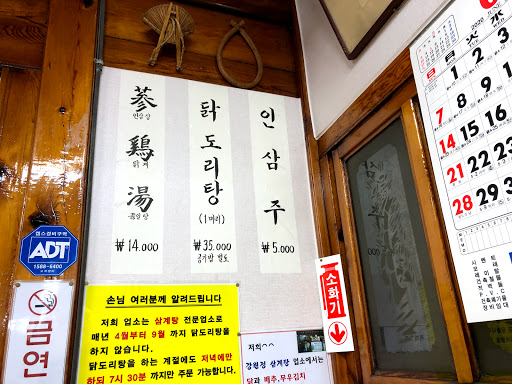 蔘
인삼 삼
鷄
닭 계
湯
끓일 탕
₩ 14.000
닭도리탕
(1마리)
₩ 35.000
공기밥 별도
인삼주
₩ 5.000
세스코존구역
ADT
1588-6400
금연
손님 여러분께 알려드립니다
저희 업소는 삼계탕 전문업소로
매년 4월부터 9월 까지 닭도리탕을
하지 않습니다.
닭도리탕을 하는 계절에도 저녁에만
하되 7시 30분 까지만 주문 가능합니다.
소화기
저희^^
강원정 삼계탕 업소에서는
닭과 배추,무우김치
2020
日 火 水
1 2 3
7 8 9 10
14 15 16
21 22 23
28 29 30